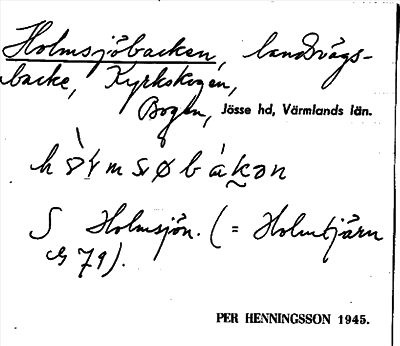 Holmsjöbacken, landsvägs-
backe, Kyrkskogen,
Bogen, Jösse hd, Värmlands län.
S Holmsjön. (= Holmtjärn
79).
PER HENNINGSSON 1945.